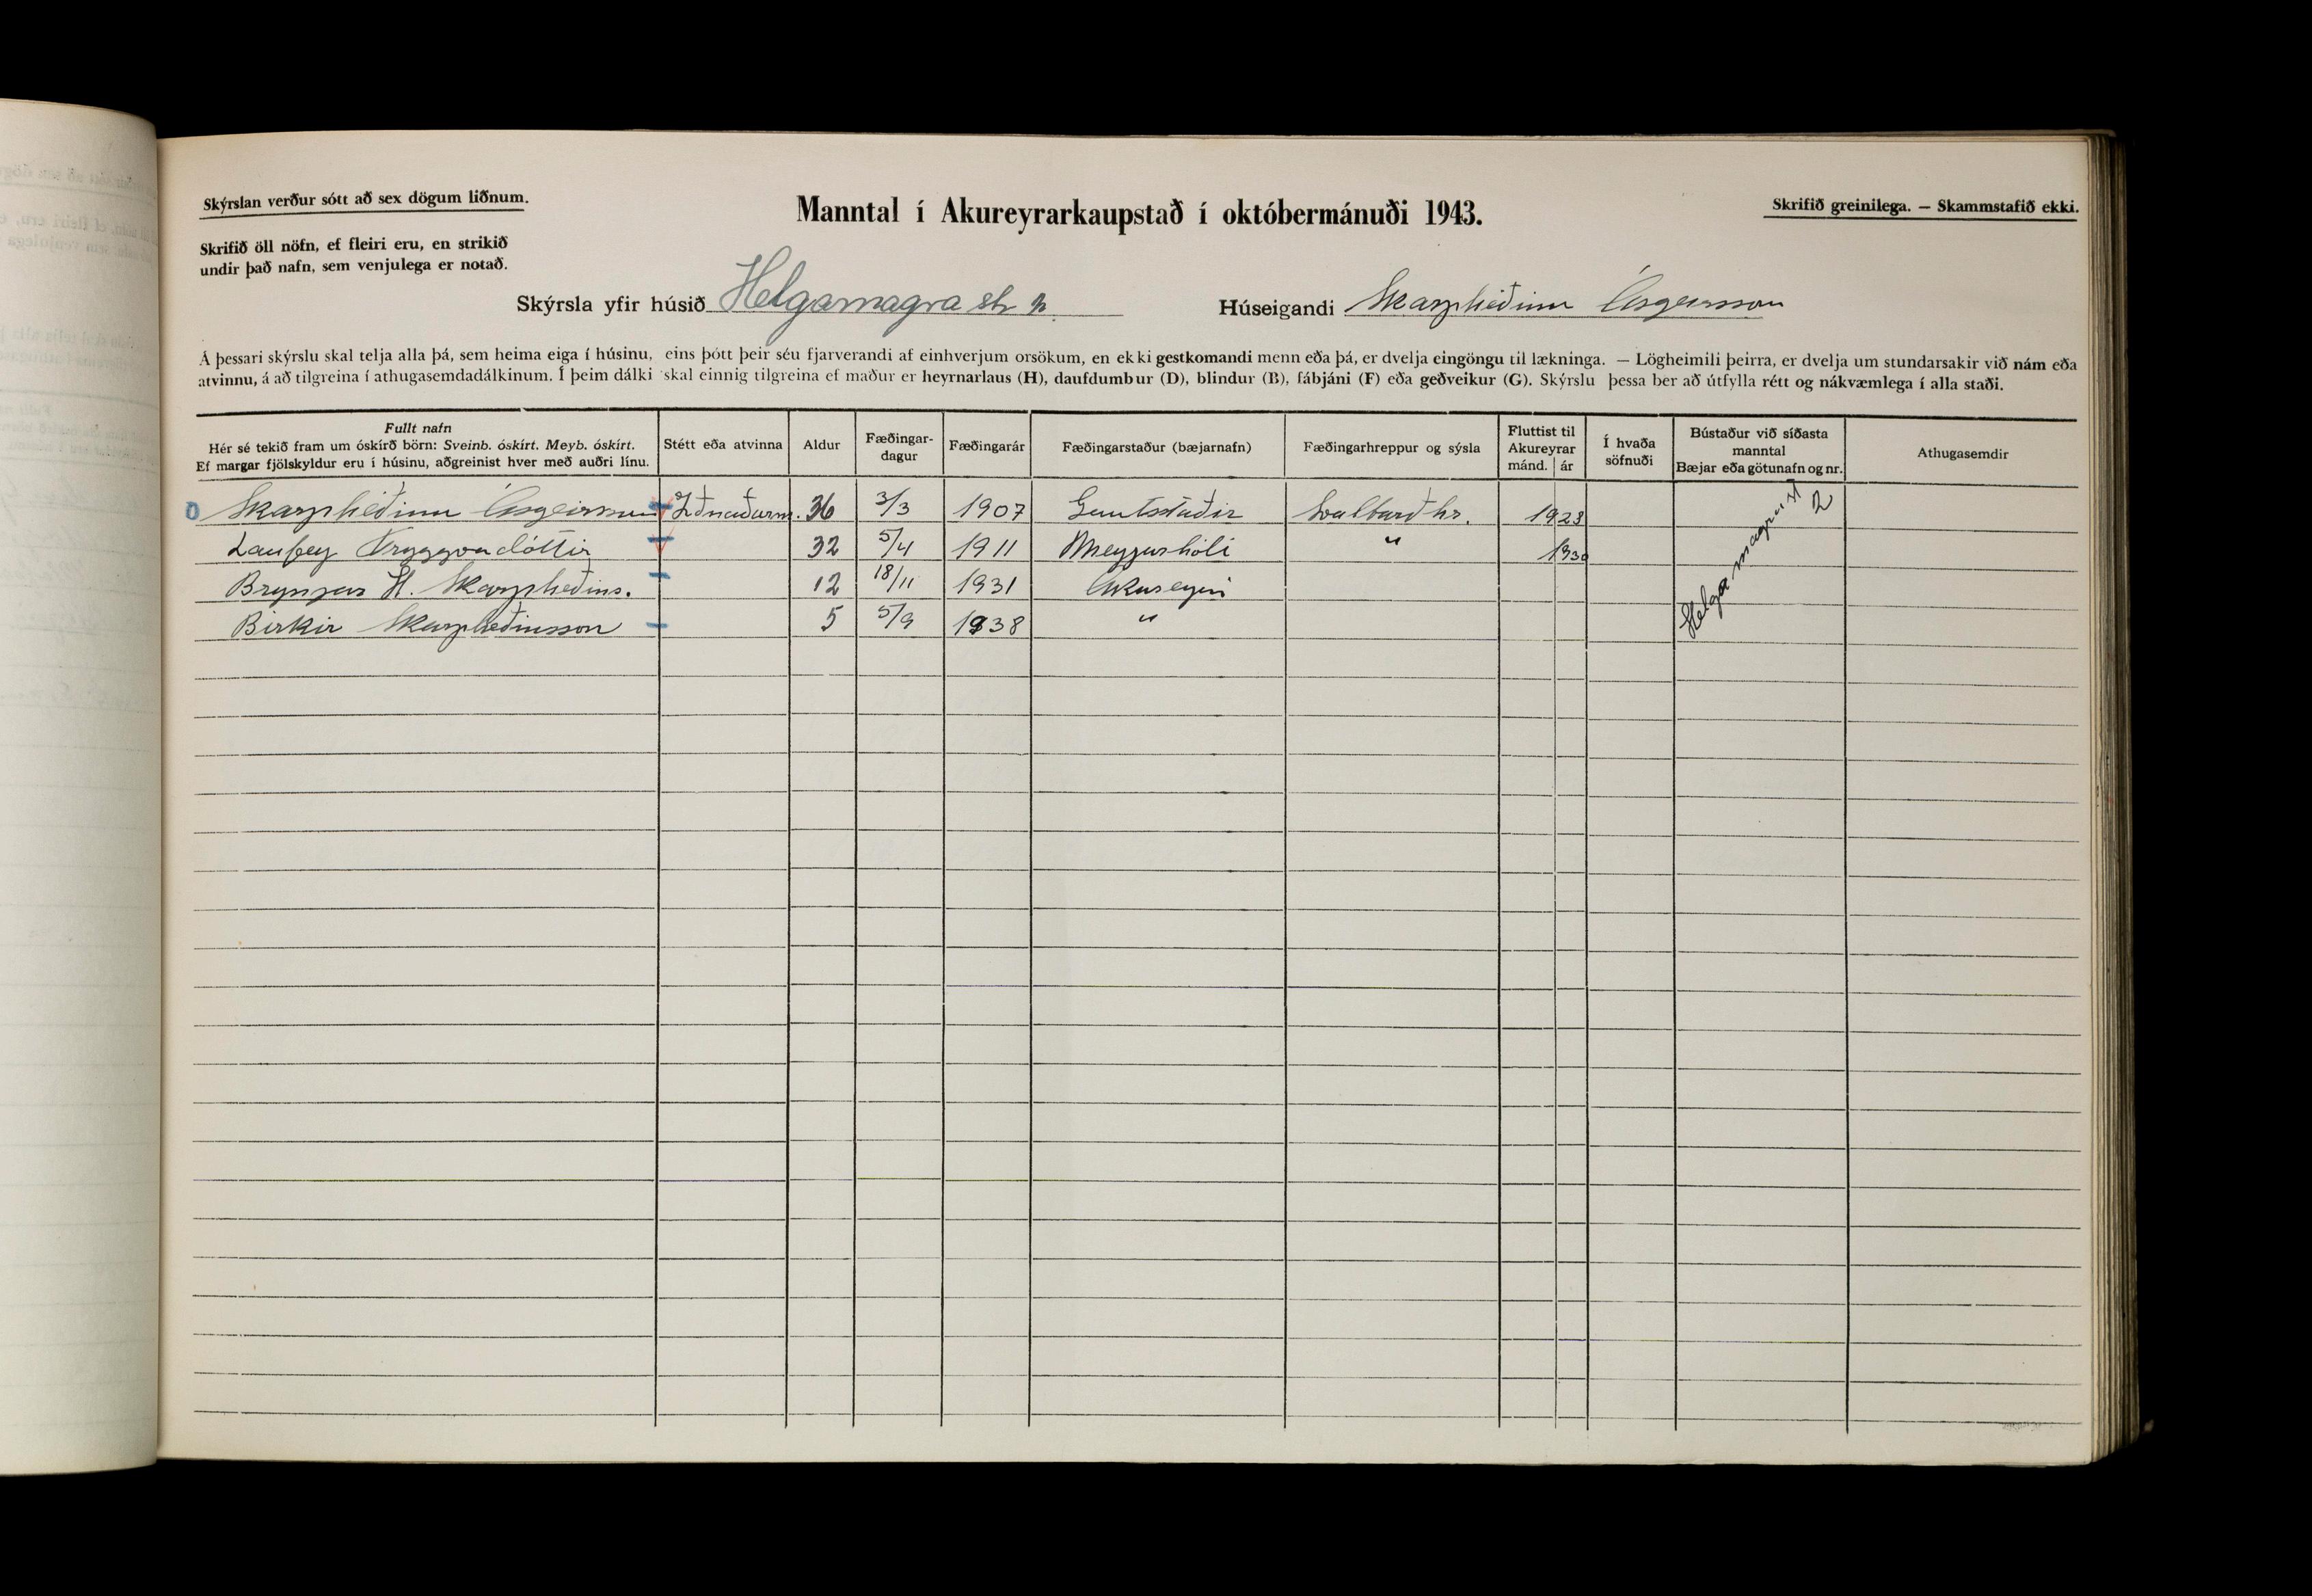 Skýrslan verður sótt að sex dögum liðnum.
Manntal í Akureyrarkaupstað í októbermánuði 1943.
Skrifið greinilega. — Skammstafið ekki.
Skrifið öll nöfn, ef fleiri eru, en strikið
undir það nafn, sem venjulega er notað.
Skýrsla yfir húsið Helgamagra str 2 Húseigandi Skarphéðinn Ásgeirsson
Á þessari skýrslu skal telja alla þá, sem heima eiga í húsinu, eins þótt þeir séu fjarverandi af einhverjum orsökum, en ekki gestkomandi menn eða þá, er dvelja eingöngu til lækninga. — Lögheimili þeirra, er dvelja um stundarsakir við nám eða
atvinnu, á að tilgreina í athugasemdadálkinum. Í þeim dálki skal einnig tilgreina ef maður er heyrnarlaus (H), daufdumbur (D), blindur (B), fábjáni (F) eða geðveikur (G). Skýrslu þessa ber að útfylla rétt og nákvæmlega í alla staði.
Fullt nafn
Hér sé tekið fram um óskírð börn: Sveinb. óskírt. Meyb. óskírt.
Ef margar fjölskyldur eru í húsinu, aðgreinist hver með auðri línu.
Stétt eða atvinna
Aldur
Fæðingar-
dagur
Fæðingarár
Fæðingarstaður (bæjarnafn)
Fæðingarhreppur og sýsla
Fluttist til
Akureyrar
mánd. ár
Í hvaða
söfnuði
Bústaður við síðasta
manntal
Bæjar eða götunafn og nr.
Athugasemdir
0 Skarphéðinn Ásgeirsson Iðnaðarm. 36 3/3 1907 Gautsstaðir Svalbarðhr. 1928
Laufey Tryggvadóttir 32 5/4 1911 Meyjarhóli " 1930
Brynjar H. Skarphéðins. 12 18/11 1931 Akureyri
Birkir Skarphéðinsson 5 5/9 1938 "
Helga magrast 2